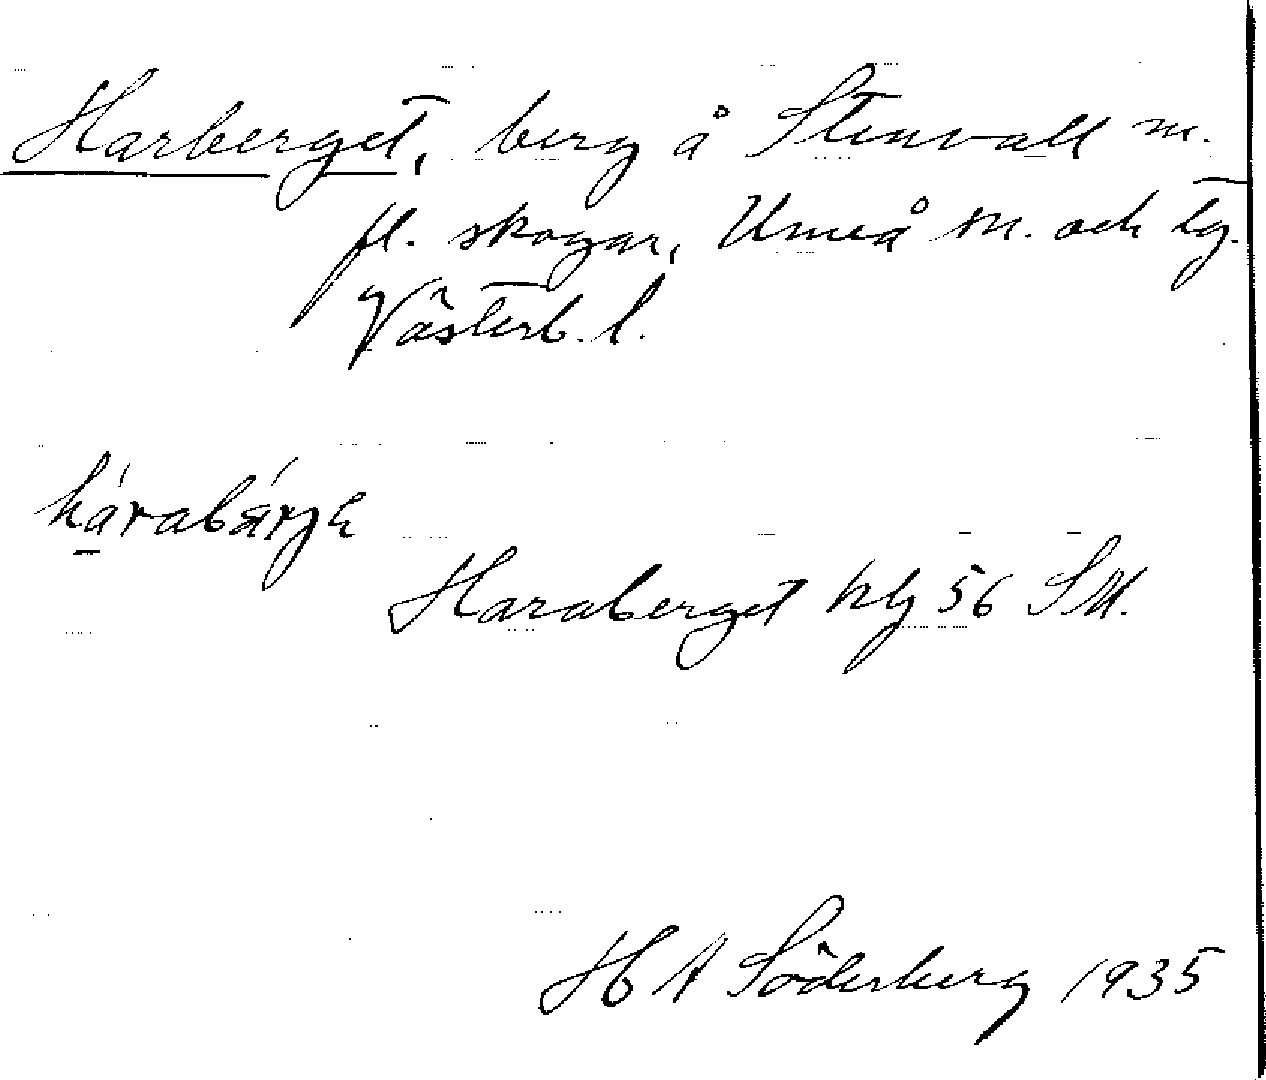 Harberget, berg å Stenvall m.
fl. skogar, Umeå sn. och tg.
Västerb. l.
hárabárje
Haraberget blg 56 SM.
H A Söderberg 1935